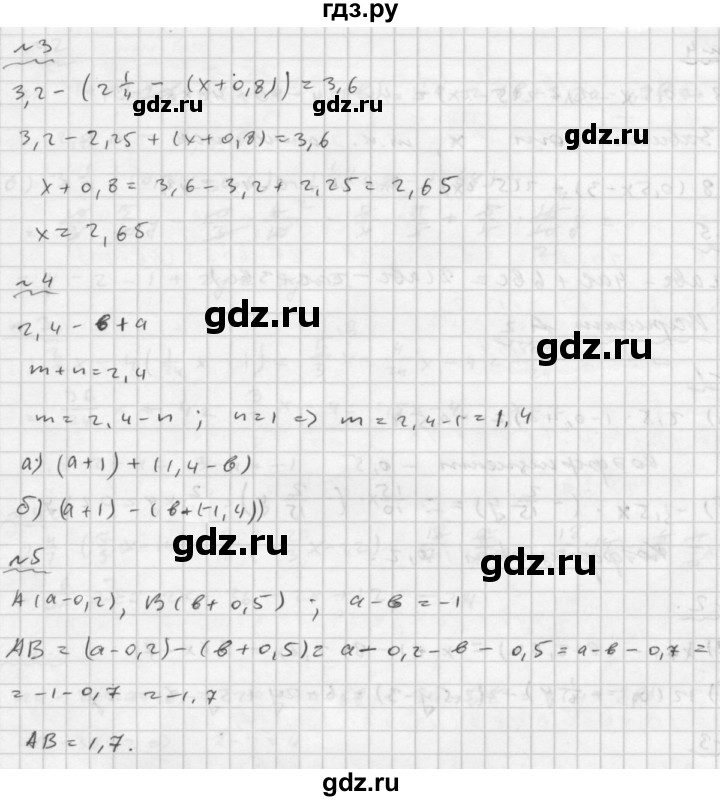 гдз.ру
№3
3,2 - (2 1/4 - (x+0,8)) = 3,6
gdz.ru
gdz.ru
gdz.ru
3,2 - 2,25 + (x+0,8) = 3,6
x + 0,8 = 3,6 - 3,2 + 2,25 = 2,65
x = 2,65
№4
gdz.ru
2,4 - в + a
gdz.ru
m + n = 2,4
m = 2,4 - n ; n = 1 => m = 2,4 - 1 = 1,4
а) (a+1) + (1,4 - в)
б) (a+1) - (в + (-1,4))
gdz.ru
№5
gdz.ru
A(a-0,2), B(в+0,5) ; a - в = -1
AB = (a-0,2) - (в+0,5) = a - 0,2 - в - 0,5 = a - в - 0,7 =
= -1 - 0,7 = -1,7
AB = 1,7.
gdz.ru